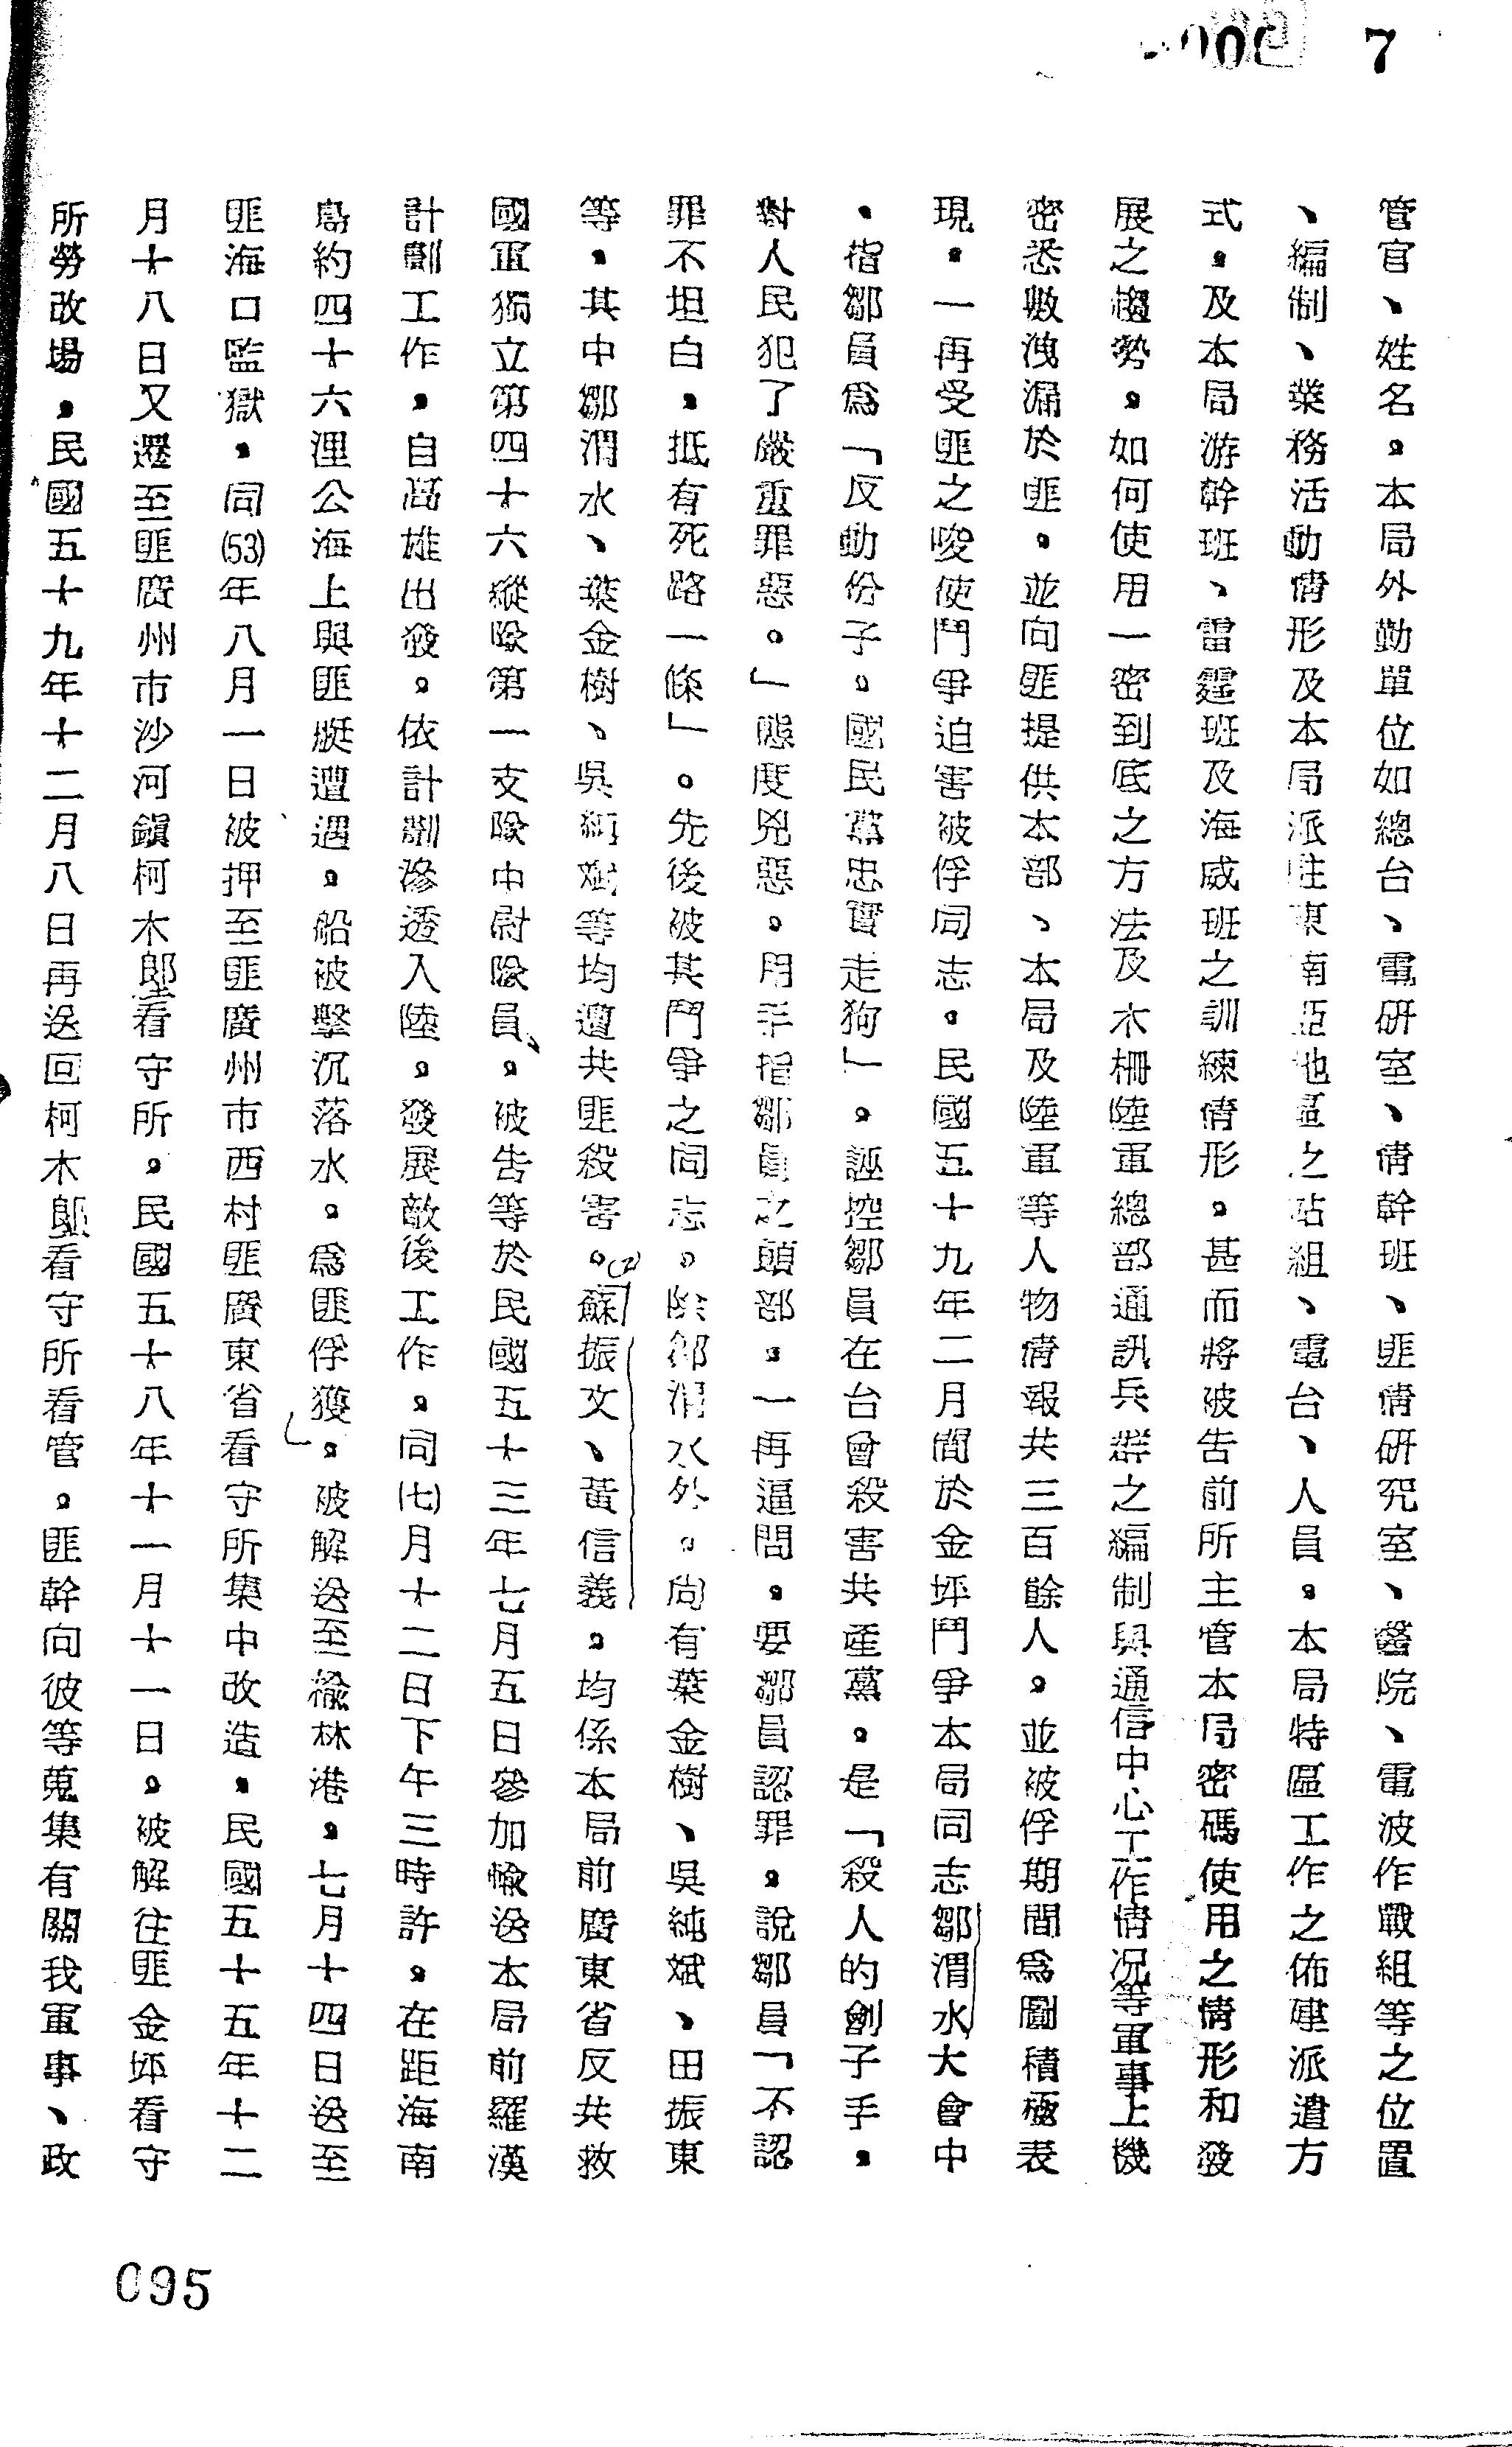 7
管官、姓名。本局外勤單位如總台、電研室、情幹班、匪情研究室、醫院、電波作戰組等之位置
、編制、業務活動情形及本局派駐東南亞地區之站組、電台、人員。本局特區工作之佈建派遣方
式。及本局游幹班、雷霆班及海威班之訓練情形。甚而將被告前所主管本局密碼使用之情形和發
展之趨勢。如何使用一密到底之方法及木柵陸軍總部通訊兵群之編制與通信中心工作情況等軍事上機
密悉數洩漏於匪。並向匪提供本部、本局及陸軍等人物情報共三百餘人。並被俘期間為圖積極表
現。一再受匪之唆使鬥爭迫害被俘同志。民國五十九年二月間於金坪鬥爭本局同志鄒渭水大會中
，指鄒員為「反動份子。國民黨忠實走狗」。誣控鄒員在台曾殺害共產黨。是「殺人的劊子手。
對人民犯了嚴重罪惡。」態度兇惡。用手指鄒員之頭部。一再逼問。要鄒員認罪。說鄒員「不認
罪不坦白。抵有死路一條」。先後被其鬥爭之同志。除鄒渭水外。尚有葉金樹、吳純斌、田振東
等。其中鄒渭水、葉金樹、吳純斌等均遭共匪殺害。(2)蘇振文、黃信義。均係本局前廣東省反共救
國軍獨立第四十六縱隊第一支隊中尉隊員。被告等於民國五十三年七月五日參加輸送本局前羅漢
計劃工作。自高雄出發。依計劃滲透入陸。發展敵後工作。同(七)月十二日下午三時許。在距海南
島約四十六浬公海上與匪艇遭遇。船被擊沉落水。為匪俘獲。被解送至榆林港。七月十四日送至
匪海口監獄。同(53)年八月一日被押至匪廣州市西村匪廣東省看守所集中改造。民國五十五年十二
月十八日又遷至匪廣州市沙河鎮柯木塱看守所。民國五十八年十一月十一日。被解往匪金坪看守
所勞改場。民國五十九年十二月八日再送回柯木塱看守所看管。匪幹向彼等蒐集有關我軍事、政
095